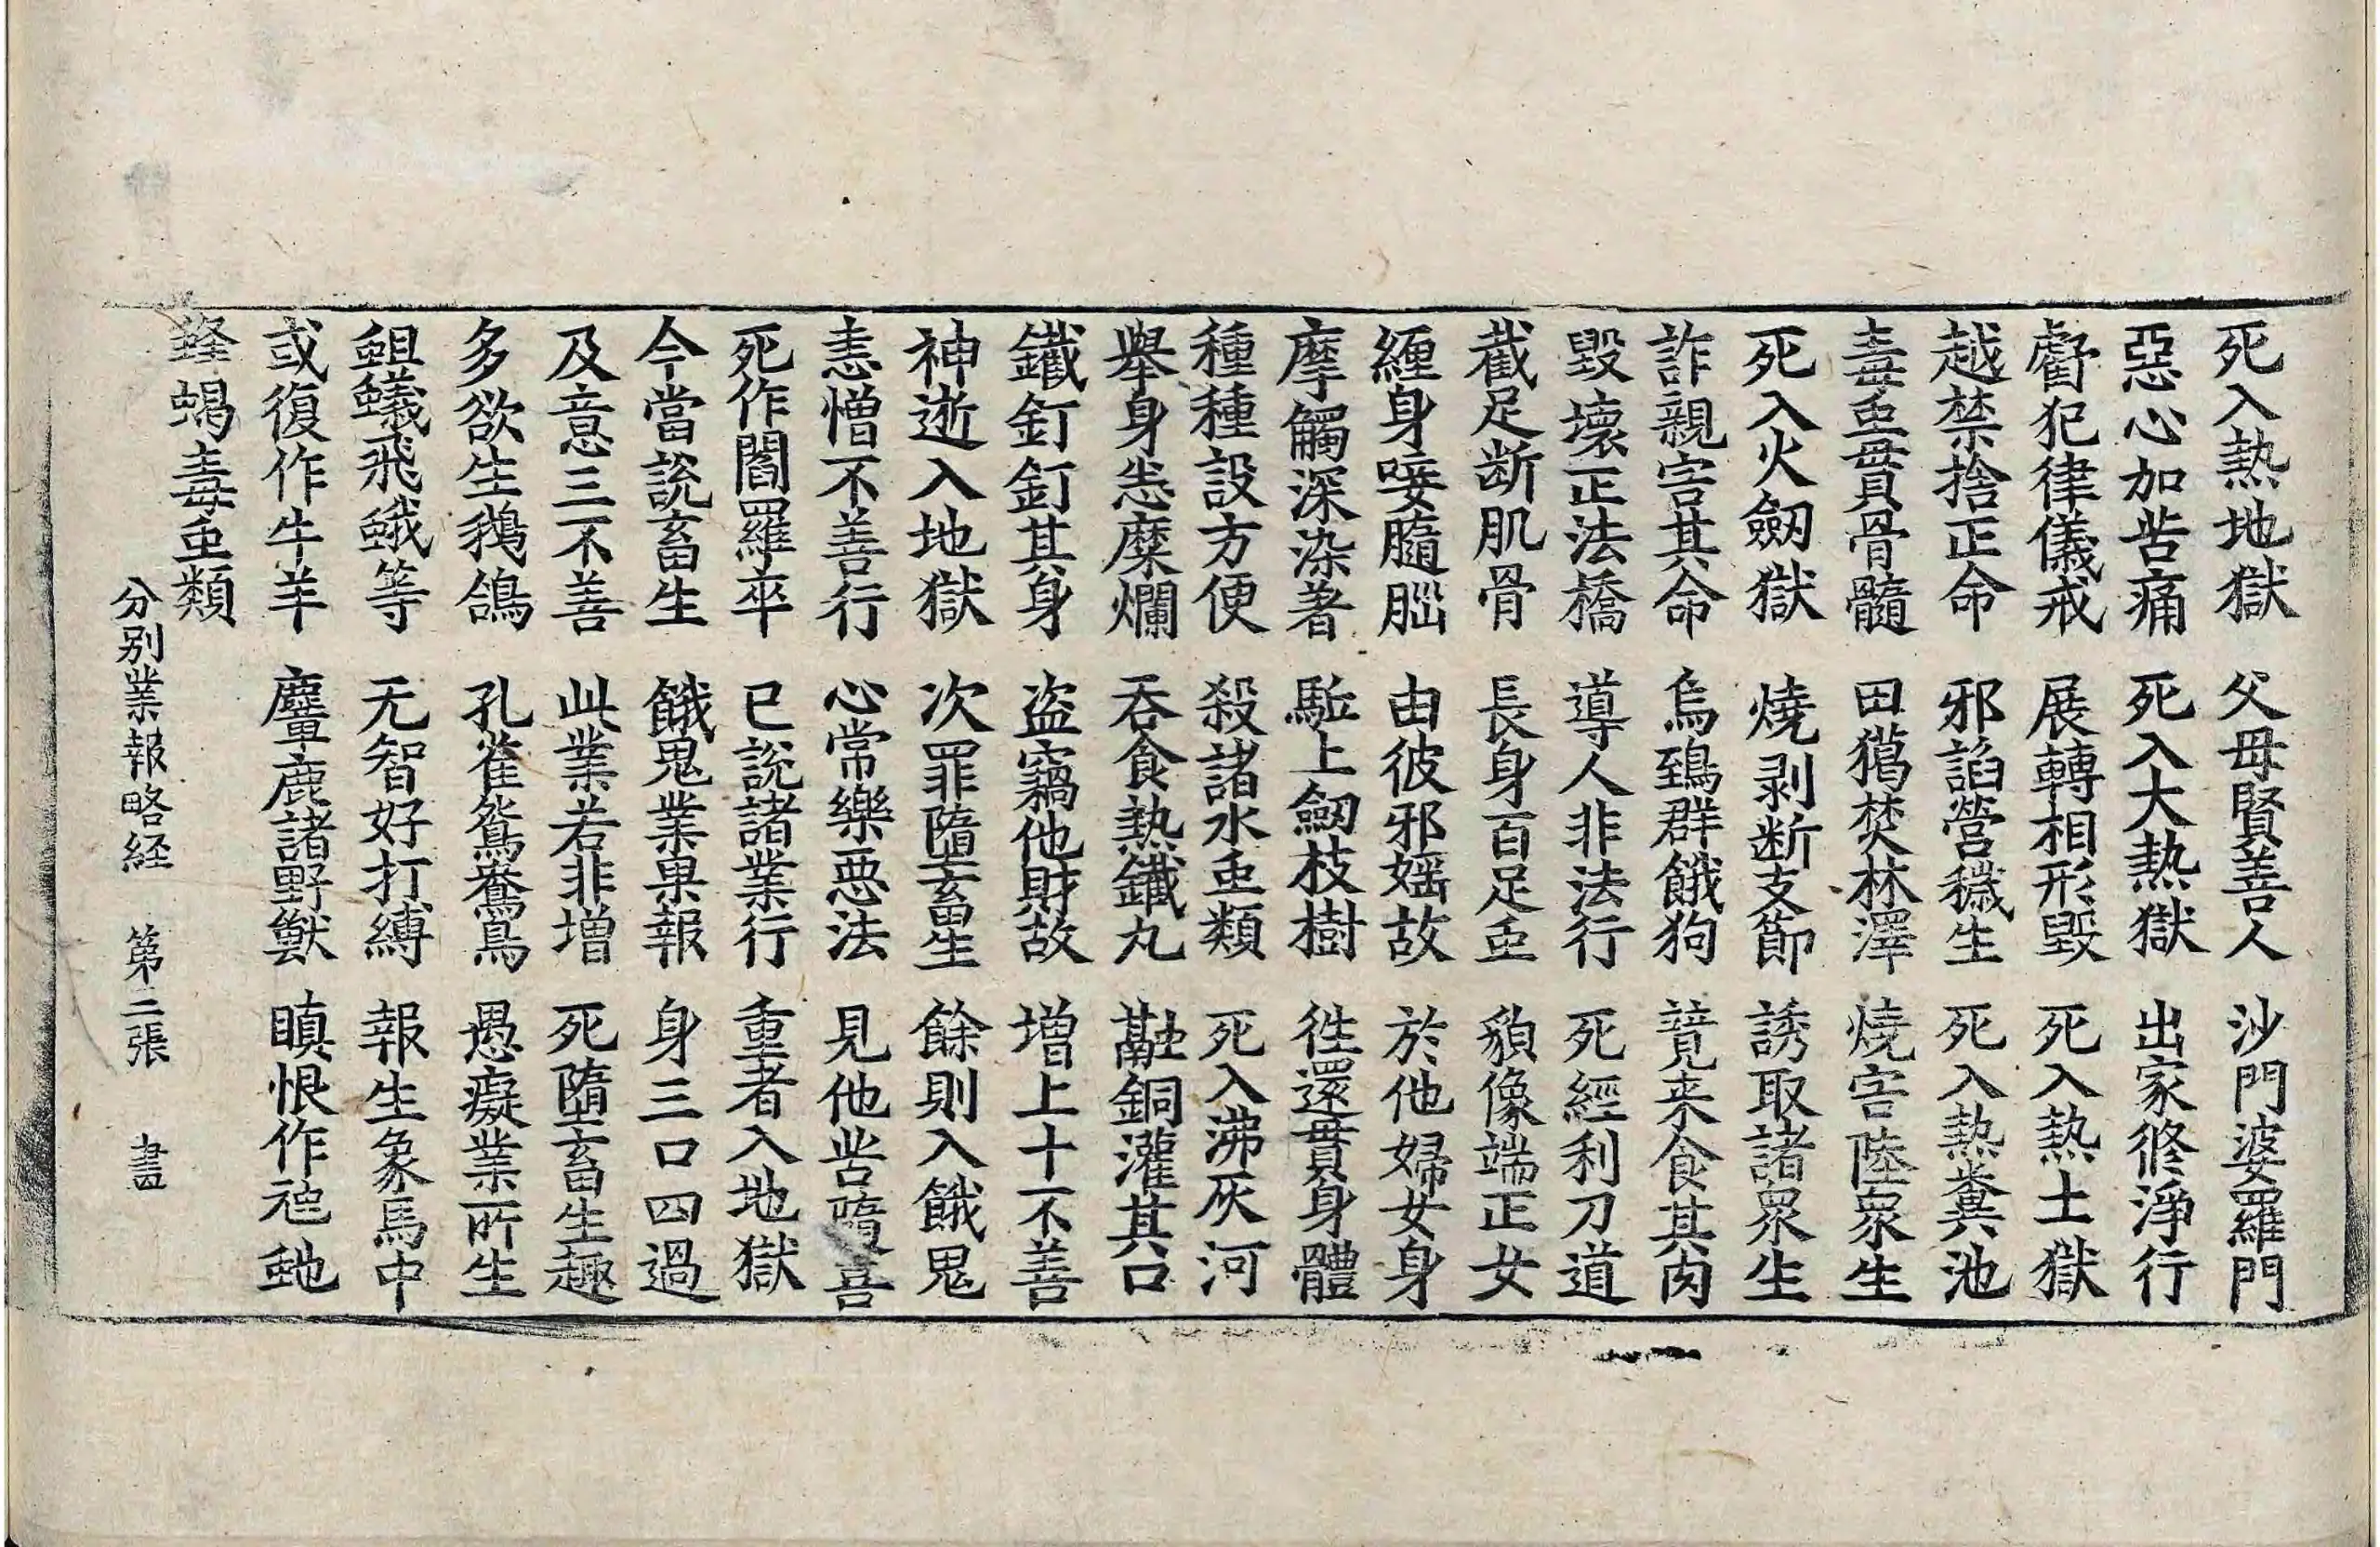 死入熱地獄　父母賢善人　沙門婆羅門
惡心加苦痛　死入大熱獄　出家修淨行
虧犯律儀戒　展轉相形毀　死入熱土獄
越禁捨正命　邪諂營穢生　死入熱糞池
毒䖝貫骨髓　田獦焚林澤　燒害陸衆生
死入火劒獄　燒剥断支節　誘取諸衆生
詐親害其命　烏鵄群餓狗　競来食其肉
毀壞正法橋　導人非法行　死經利刀道
截足断肌骨　長身百足䖝　貌像端正女
纏身唼髓腦　由彼邪婬故　於他婦女身
摩觸深染著　駈上劒枝樹　徃還貫身體
種種設方便　殺諸水䖝類　死入沸灰河
舉身悉糜爛　吞食熱鐵丸　融銅灌其口
鐵釘釘其身　盗竊他財故　增上十不善
神逝入地獄　次罪墮畜生　餘則入餓鬼
恚憎不善行　心常樂惡法　見他苦隨喜
死作閻羅卒　已說諸業行　重者入地獄
今當說畜生　餓鬼業果報　身三口四過
及意三不善　此業若非增　死墮畜生趣
多欲生鵝鴿　孔雀鴛鴦鳥　愚癡業所生
蛆蟻飛蛾等　无智好打縛　報生象馬中
或復作牛羊　麞鹿諸野獸　瞋恨作虺虵
蜂蝎毒䖝類
分别業報略経　第二張　書